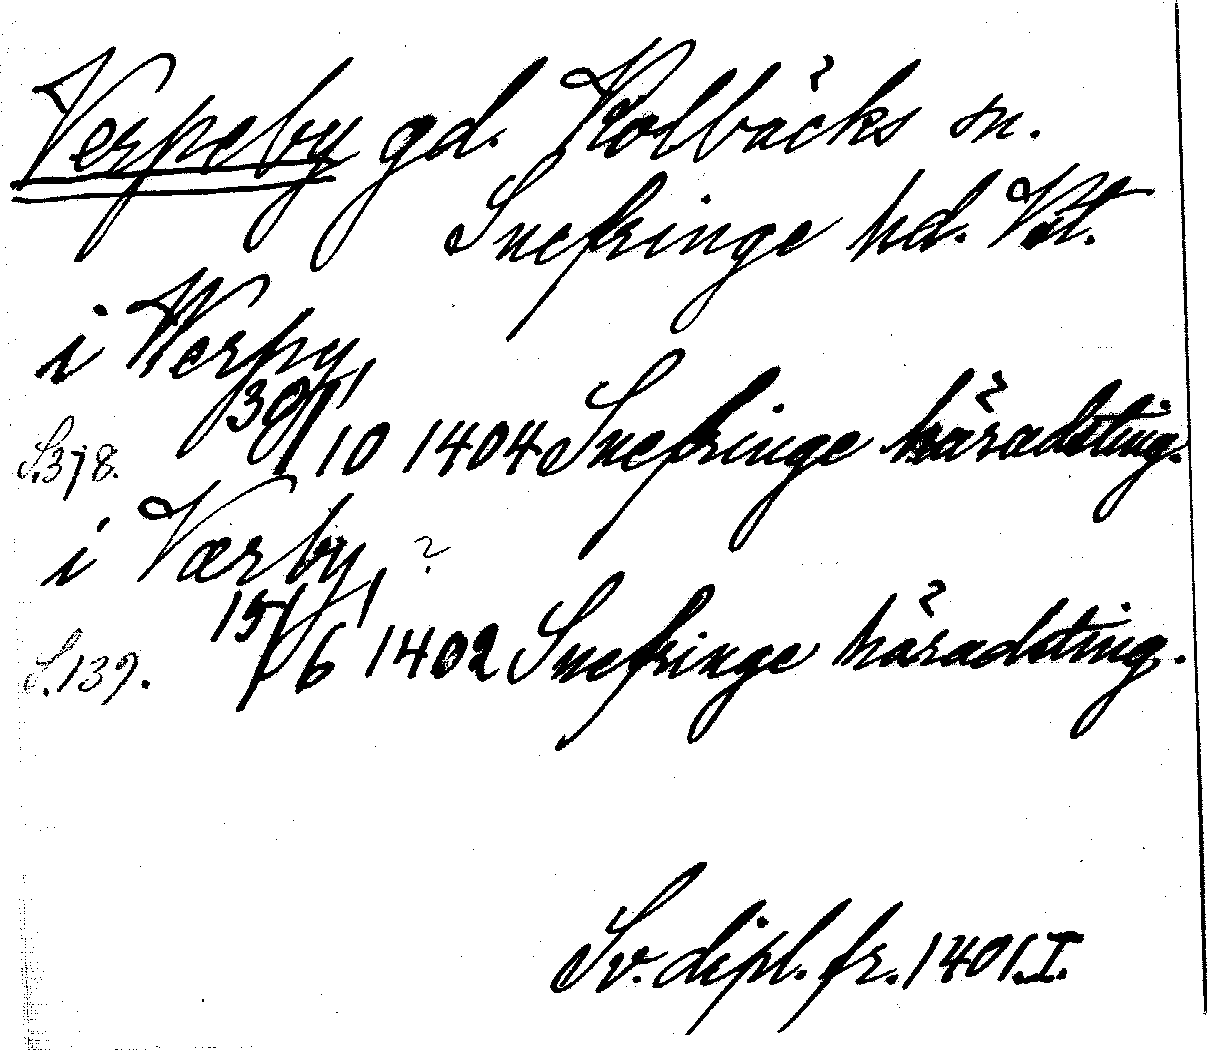 Verpeby gd. Kolbäcks sn.
Snefringe hd. Vstl.
i Werpy,
S. 378. 30/10 1404 Snefringe häradsting.
i Værby, ?
S. 139. 15/6 1402 Snefringe häradsting.
Sv. dipl. fr. 1401. I.